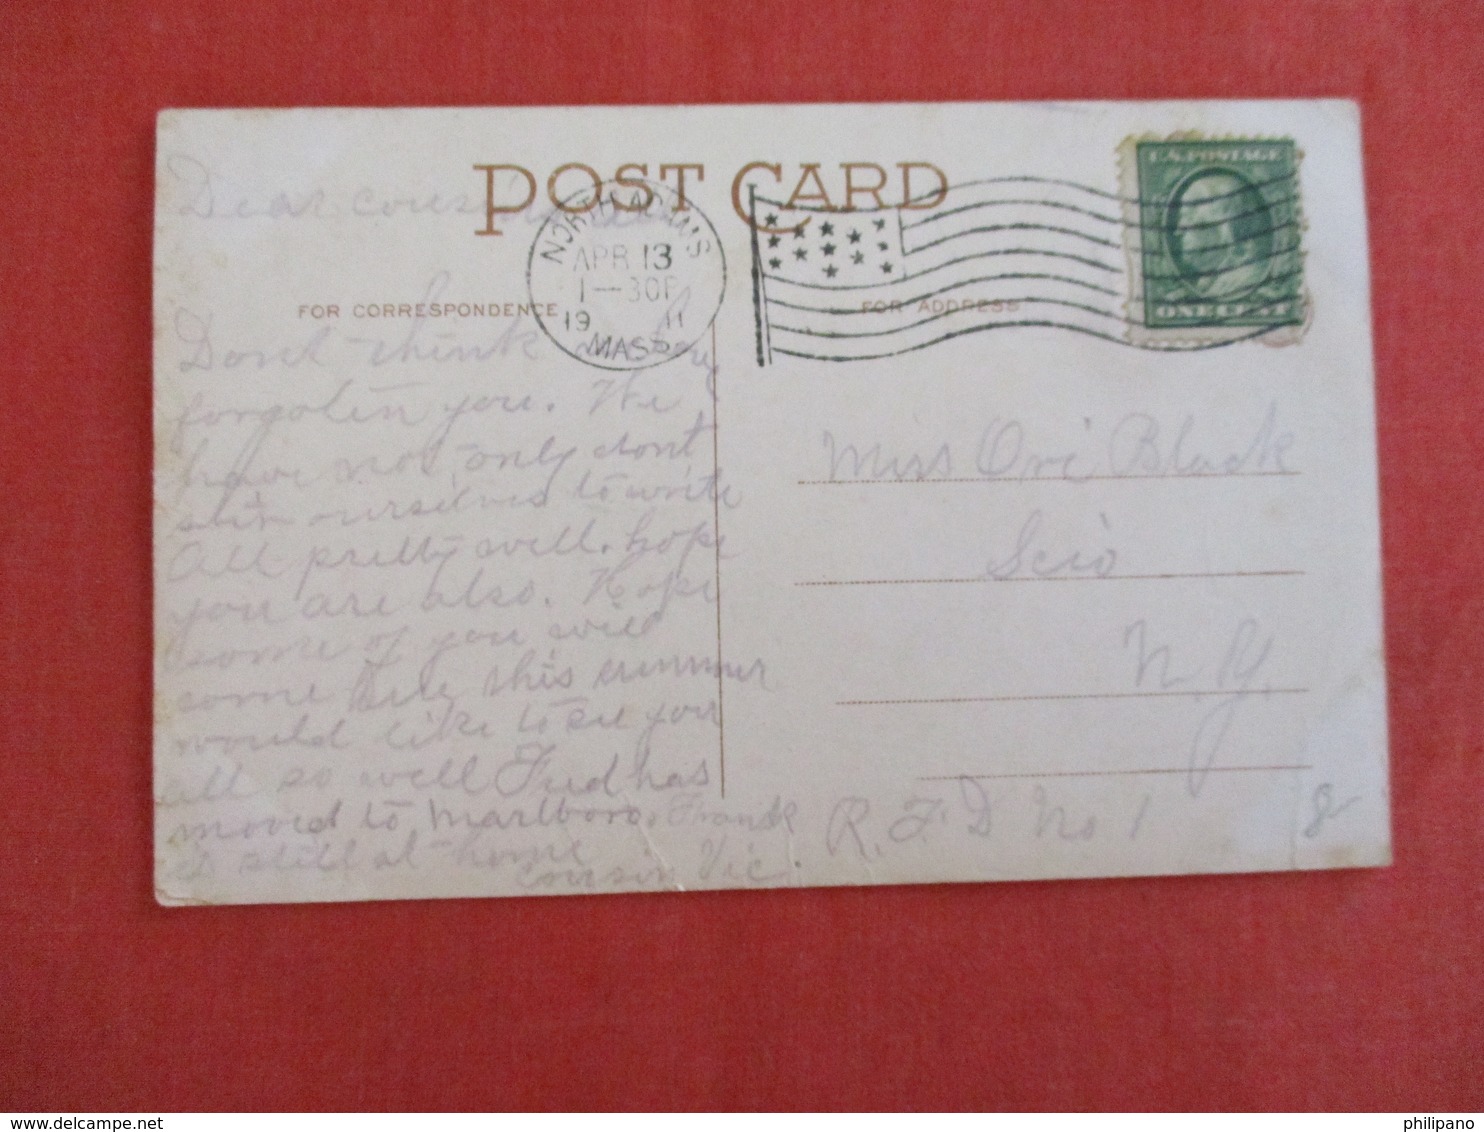 POST CARD
U.S. POSTAGE
ONE CENT
NORTH ADAMS
APR 13
1—30P
19 11
MASS
FOR CORRESPONDENCE
FOR ADDRESS
Dear cousin
Dont think I have
forgoten you. We
have not only dont
ourselves to write
All pretty well. hope
you are also. Hope
some of you will
come this summer
would like to see you
all so well Fred has
moved to Marlboro. Frank
is still at home
cousin Vic.
Miss Ori Black
Scio
N.Y.
R.F.D No 1
philipano